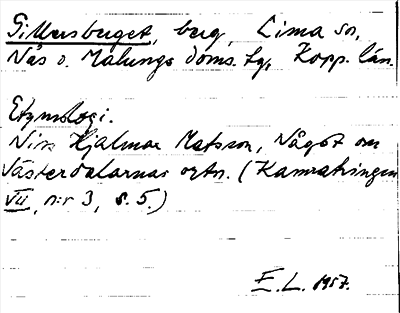 Gillersberget, berg, Lima sn,
Nås o. Malungs doms. tg, Kopp. län.
Etymologi.
Nils Hjalmar Matsson, Något om
Västerdalarnas ortn. (Kamratringen
VII, n:r 3, s. 5.)
E. L. 1957.